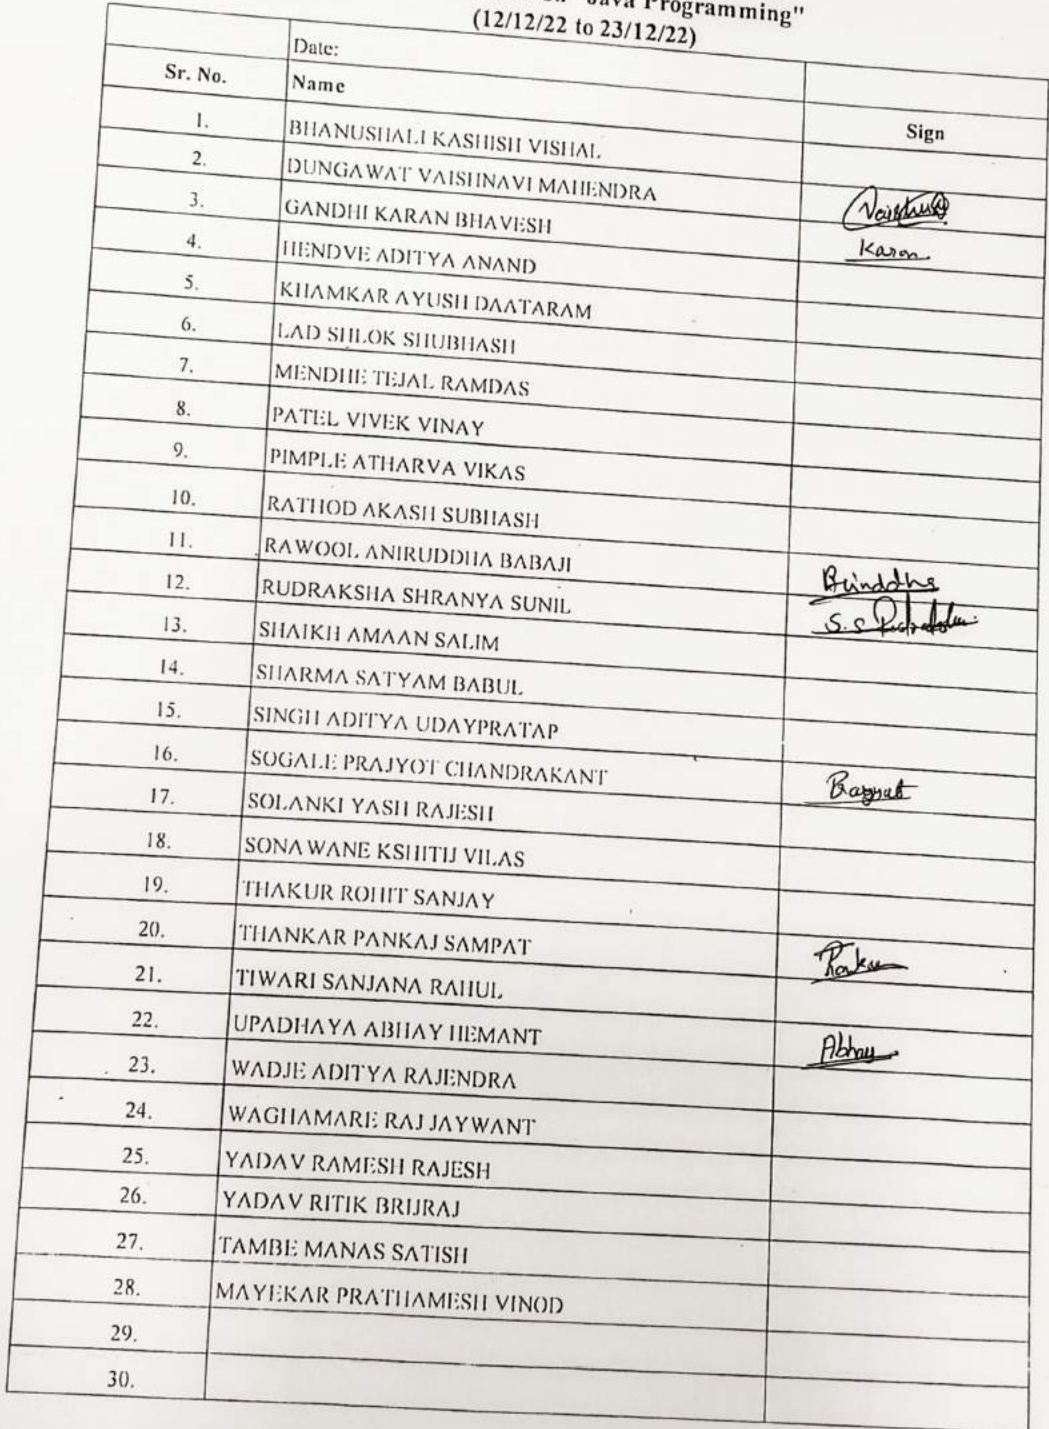 "Java Programming"
(12/12/22 to 23/12/22)
Date:
Sr. No. Name Sign
1. BHANUSHALI KASHISH VISHAL
2. DUNGAWAT VAISHNAVI MAHENDRA
3. GANDHI KARAN BHAVESH Karan
4. HENDVE ADITYA ANAND
5. KHAMKAR AYUSH DAATARAM
6. LAD SHLOK SHUBHASH
7. MENDHE TEJAL RAMDAS
8. PATEL VIVEK VINAY
9. PIMPLE ATHARVA VIKAS
10. RATHOD AKASH SUBHASH
11. RAWOOL ANIRUDDHA BABAJI
12. RUDRAKSHA SHRANYA SUNIL S.S
13. SHAIKH AMAAN SALIM
14. SHARMA SATYAM BABUL
15. SINGH ADITYA UDAYPRATAP
16. SOGALE PRAJYOT CHANDRAKANT
17. SOLANKI YASH RAJESH
18. SONAWANE KSHITIJ VILAS
19. THAKUR ROHIT SANJAY
20. THANKAR PANKAJ SAMPAT
21. TIWARI SANJANA RAHUL
22. UPADHAYA ABHAY HEMANT Abhay
23. WADJE ADITYA RAJENDRA
24. WAGHAMARE RAJ JAYWANT
25. YADAV RAMESH RAJESH
26. YADAV RITIK BRIJRAJ
27. TAMBE MANAS SATISH
28. MAYEKAR PRATHAMESH VINOD
29.
30.